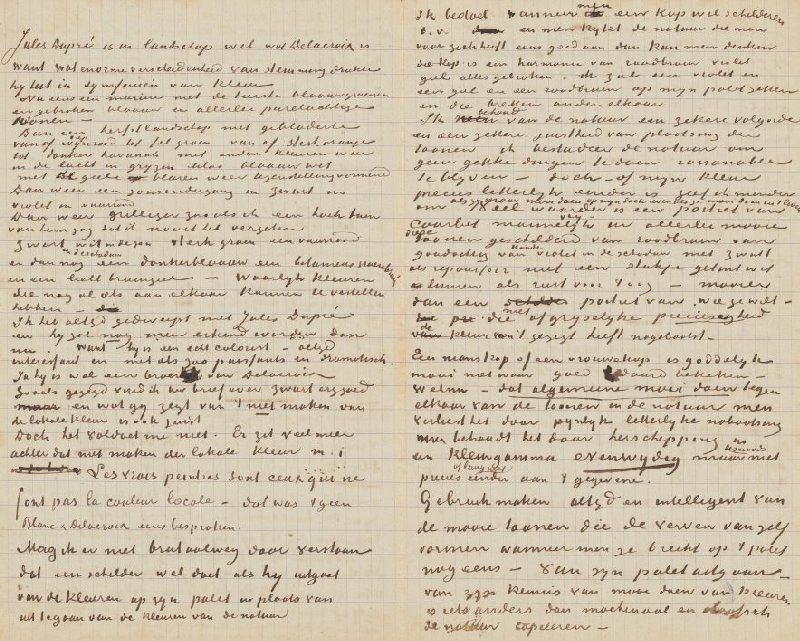 Jules Dupré is in landschap wel wat Delacroix is
want wat enorme verscheidenheid van stemming drukte
hij uit in symfonieen van kleur
Nu eens een marine met de teerste blaauwgroenen
en gebroken blaauw en allerlei paarlachtige
toonen –
Dan een herfstlandschap met gebladerte
van wijnrood tot fel groen van fel oranje
tot donker havana met andere kleuren weer
in de lucht in grijzen lilas blaauw wit
met de geele blaren weer tegenstelling vormend
Dan weer een zonsondergang in zwart in
violet in vuurrood
Dan weer grilliger zooals ik een hoek tuin
van hem zag dat ik nooit heb vergeten
Zwart in de schaduw wit in de zon sterk groen een vuurrood
en dan nog een donkerblaauw een bitumens groenbruin
en een licht bruingeel – Waarlijk kleuren
die nog al als aan elkaar kunnen te vertellen
hebben –
Ik heb altijd gedweept met Jules Dupré
en hij zal nog meer erkend worden dan
nu. Want hij is een echt colourist – altijd
interessant en met iets zoo puissants en dramatisch
Ja hij is wel een broer van Delacroix
Zooals gezegd vind ik uw brief over zwart erg goed
en wat gij zegt van 't niet maken van
de lokale kleur is ook juist
Doch het voldoet me niet. Er zit veel meer
achter dat niet maken der lokale kleur m.i
Les vrais peintres sont ceux qui ne
font pas la couleur locale – dat was 't geen
Blanc & Delacroix eens bespraken.
Mag ik er niet brutaalweg door verstaan
dat een schilder wel doet als hij uitgaat
van de kleuren op zijn palet in plaats van
uittegaan van de kleuren van de natuur
Ik bedoel wanneer men een kop wil schilderen
en men kijkt de natuur die men
voor zich heeft eens goed aan dan kan men denken
die kop is een harmonie van roodbruin violet
geel alles gebroken. ik zal een violet en
een geel en een roodbruin op mijn palet zetten
en die breken onder elkaar
Ik behoud van de natuur een zekere volgorde
en een zekere juistheid van plaatsing der
toonen ik bestudeer de natuur om
geen gekke dingen te doen raisonabel
te blijven – doch – of mijn kleur
precies letterlijk eender is geef ik minder
om als zij maar mooi doen op mijn doek even als zij mooi doen in 't leven
Veel waarder is een portret van
Courbet mannelijk vrij in allerlei mooie
diepe toonen geschilderd van roodbruin van
goudachtig van violet in de schaduw met zwart
als repoussoir met een stukje getint wit
linnen als rust voor 't oog – mooier
dan een portret van wie ge wilt –
die met afgrijselijke preciesigheid
de kleur van 't gezigt heeft nagebootst.–
Een manskop of een vrouwekop is goddelijk
mooi niet waar goed bedaard bekeken –
Welnu – dat algemeene mooi doen tegen
elkaar van de toonen in de natuur men
verliest het door pijnlijk letterlijke nabootsing
men behoudt het door herscheppen
in een kleurgamma evenwijdig maar niet
precies eender aan 't gegevene.
Gebruik maken altijd en intelligent van
de mooie toonen die de verwen van zelf
vormen wanneer men ze breekt op 't palet
nog eens – van zijn palet uitgaan –
van zijn kennis van mooi doen van kleuren
is iets anders dan machinaal en slaafsch
de natuur copieren –